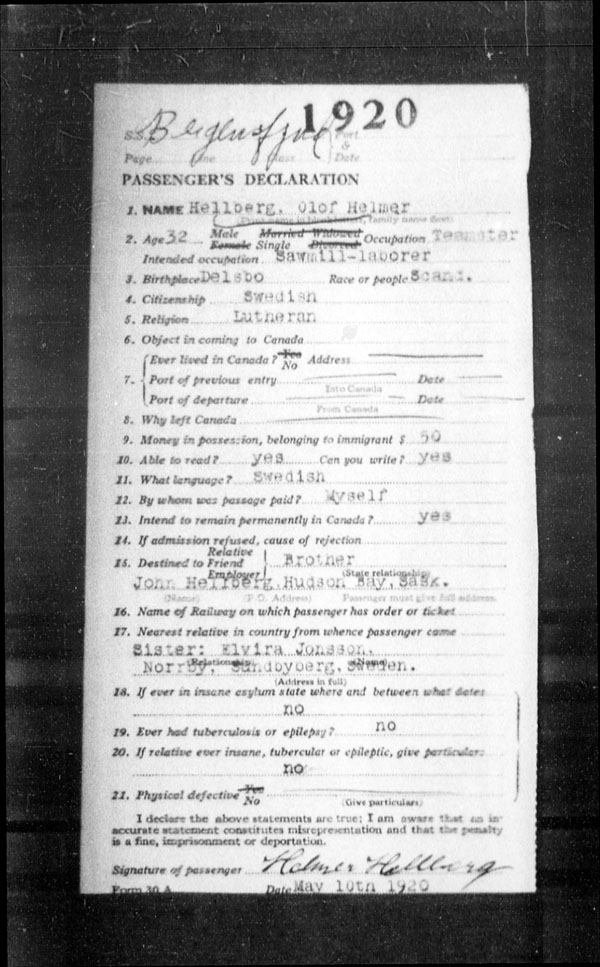 1920
S.S. Bergensfjord Port
&
Page One Class Date
PASSENGER'S DECLARATION
1. NAME Hellberg, Olof Helmer
(Print name in block letters, family name first)
2. Age 32 Male Married Widowed Occupation Teamster
Female Single Divorced
Intended occupation Sawmill-laborer
3. Birthplace Delsbo Race or people Scand.
4. Citizenship Swedish
5. Religion Lutheran
6. Object in coming to Canada
7. Ever lived in Canada? Yes No Address
Port of previous entry Date
Into Canada
Port of departure Date
From Canada
8. Why left Canada
9. Money in possession, belonging to immigrant $ 50
10. Able to read? yes Can you write? yes
11. What language? Swedish
12. By whom was passage paid? Myself
13. Intend to remain permanently in Canada? yes
14. If admission refused, cause of rejection
15. Destined to Relative Friend Employer Brother
(State relationship)
John Hellberg, Hudson Bay, Sask.
(Name) (P.O. Address) Passenger must give full address.
16. Name of Railway on which passenger has order or ticket
17. Nearest relative in country from whence passenger came
Sister: Elvira Jonsson,
(Relationship) (Name)
Norrby, Sundbyberg, Sweden.
(Address in full)
18. If ever in insane asylum state where and between what dates
no
19. Ever had tuberculosis or epilepsy? no
20. If relative ever insane, tubercular or epileptic, give particulars
no
21. Physical defective Yes No
(Give particulars)
I declare the above statements are true; I am aware that an in-
accurate statement constitutes misrepresentation and that the penalty
is a fine, imprisonment or deportation.
Signature of passenger Helmer Hellberg
Form 30 A Date May 10th 1920